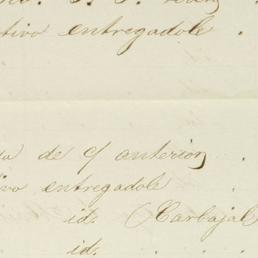 tivo entregadole
de c/ anterior
ivo entregadole
id. (Carbajal
id.